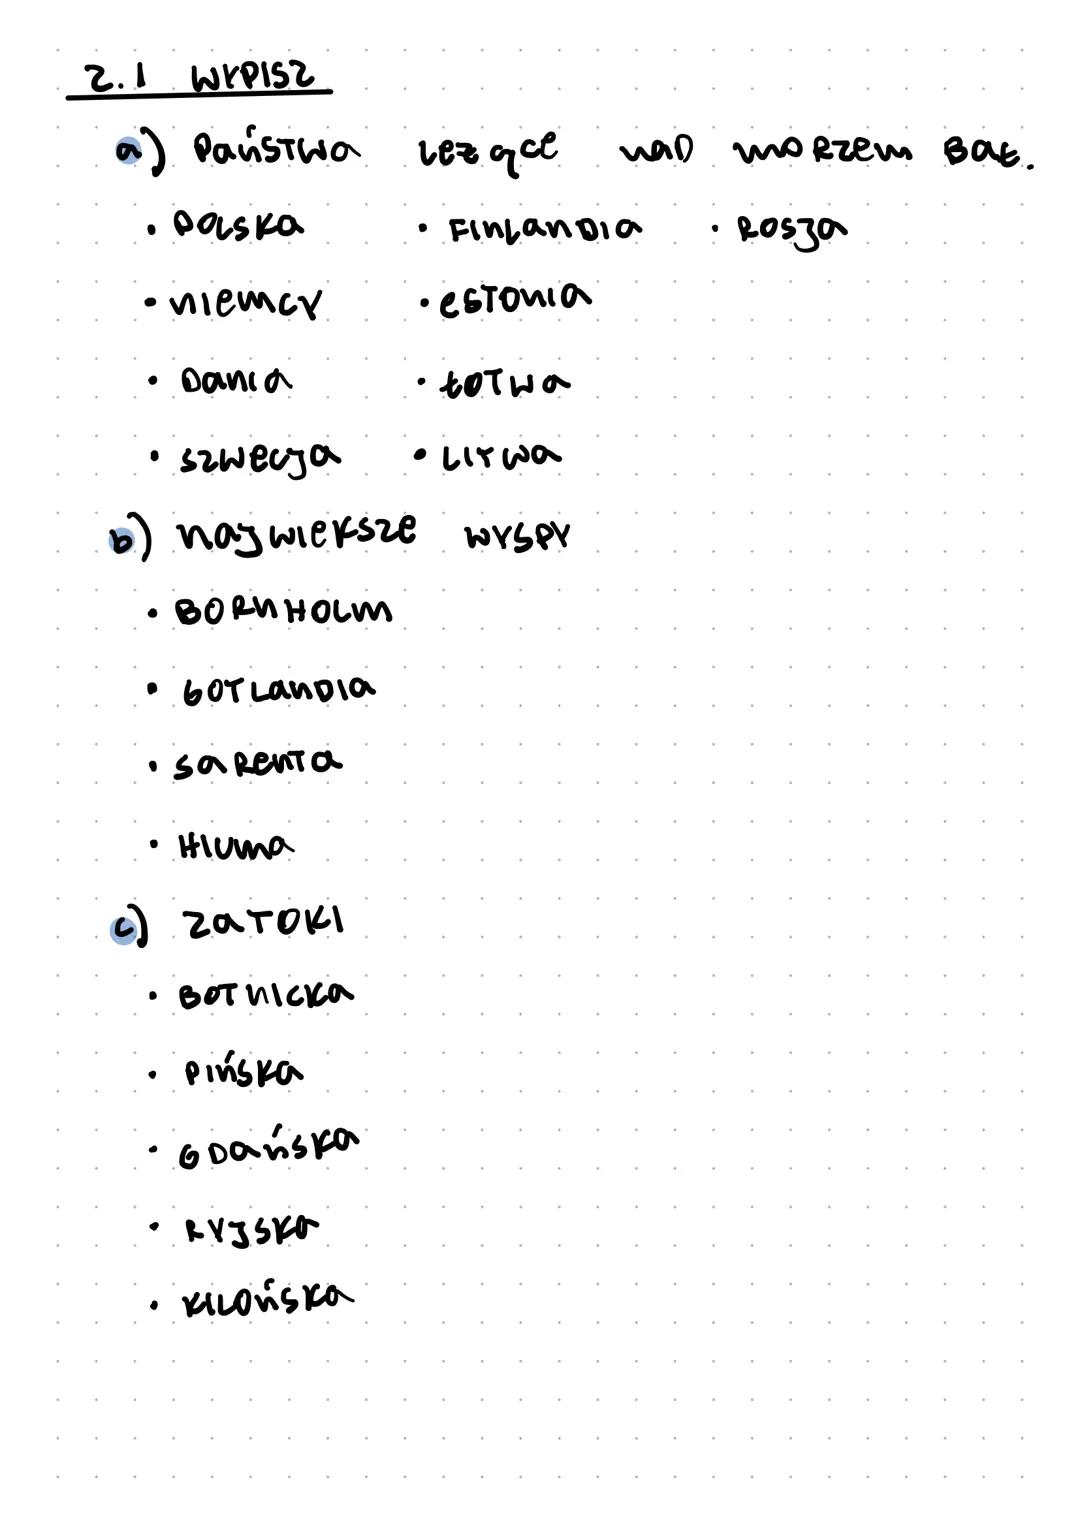 2.1 WYPISZ
a) Państwa leżące nad morzem Bał.
• Polska • Finlandia • Rosja
• niemcy • estonia
• Dania • Łotwa
• szwecja • Litwa
b) największe wyspy
• BORNHOLM
• GOTLANDIA
• SARENTA
• HIUMA
c) ZATOKI
• BOTNICKA
• PIŃSKA
• GDAŃSKA
• RYJSKA
• KILOŃSKA